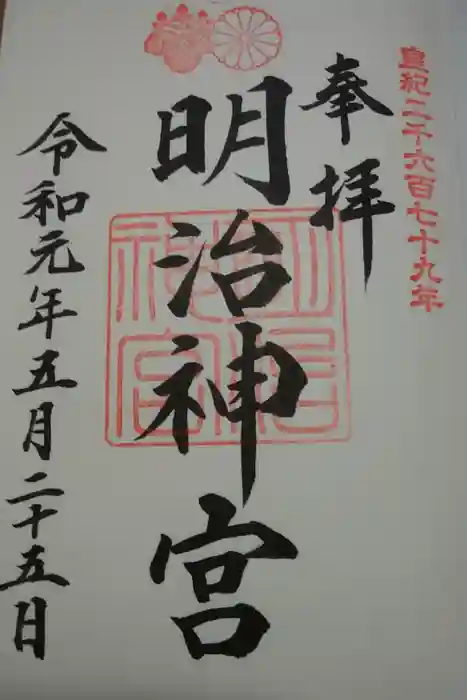 皇紀二千六百七十九年
奉拝
明治神宮
明治神宮
令和元年五月二十五日